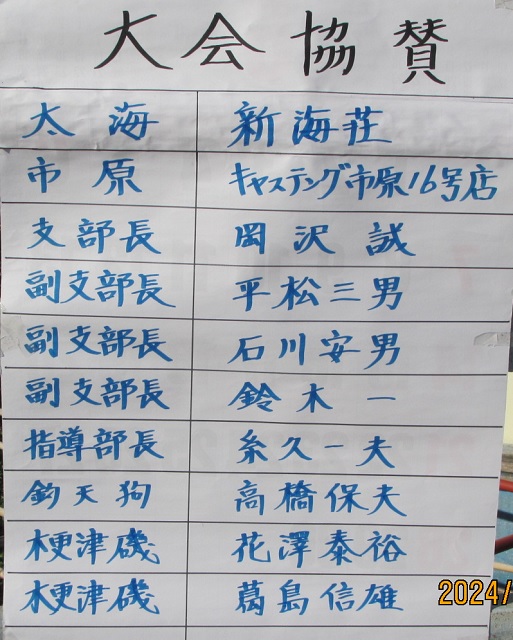 大会協賛
太海 新海荘
市原 キャスティング市原16号店
支部長 岡沢誠
副支部長 平松三男
副支部長 石川安男
副支部長 鈴木一
指導部長 糸久一夫
釣天狗 高橋保夫
木更津磯 花澤泰裕
木更津磯 葛島信雄
2024/